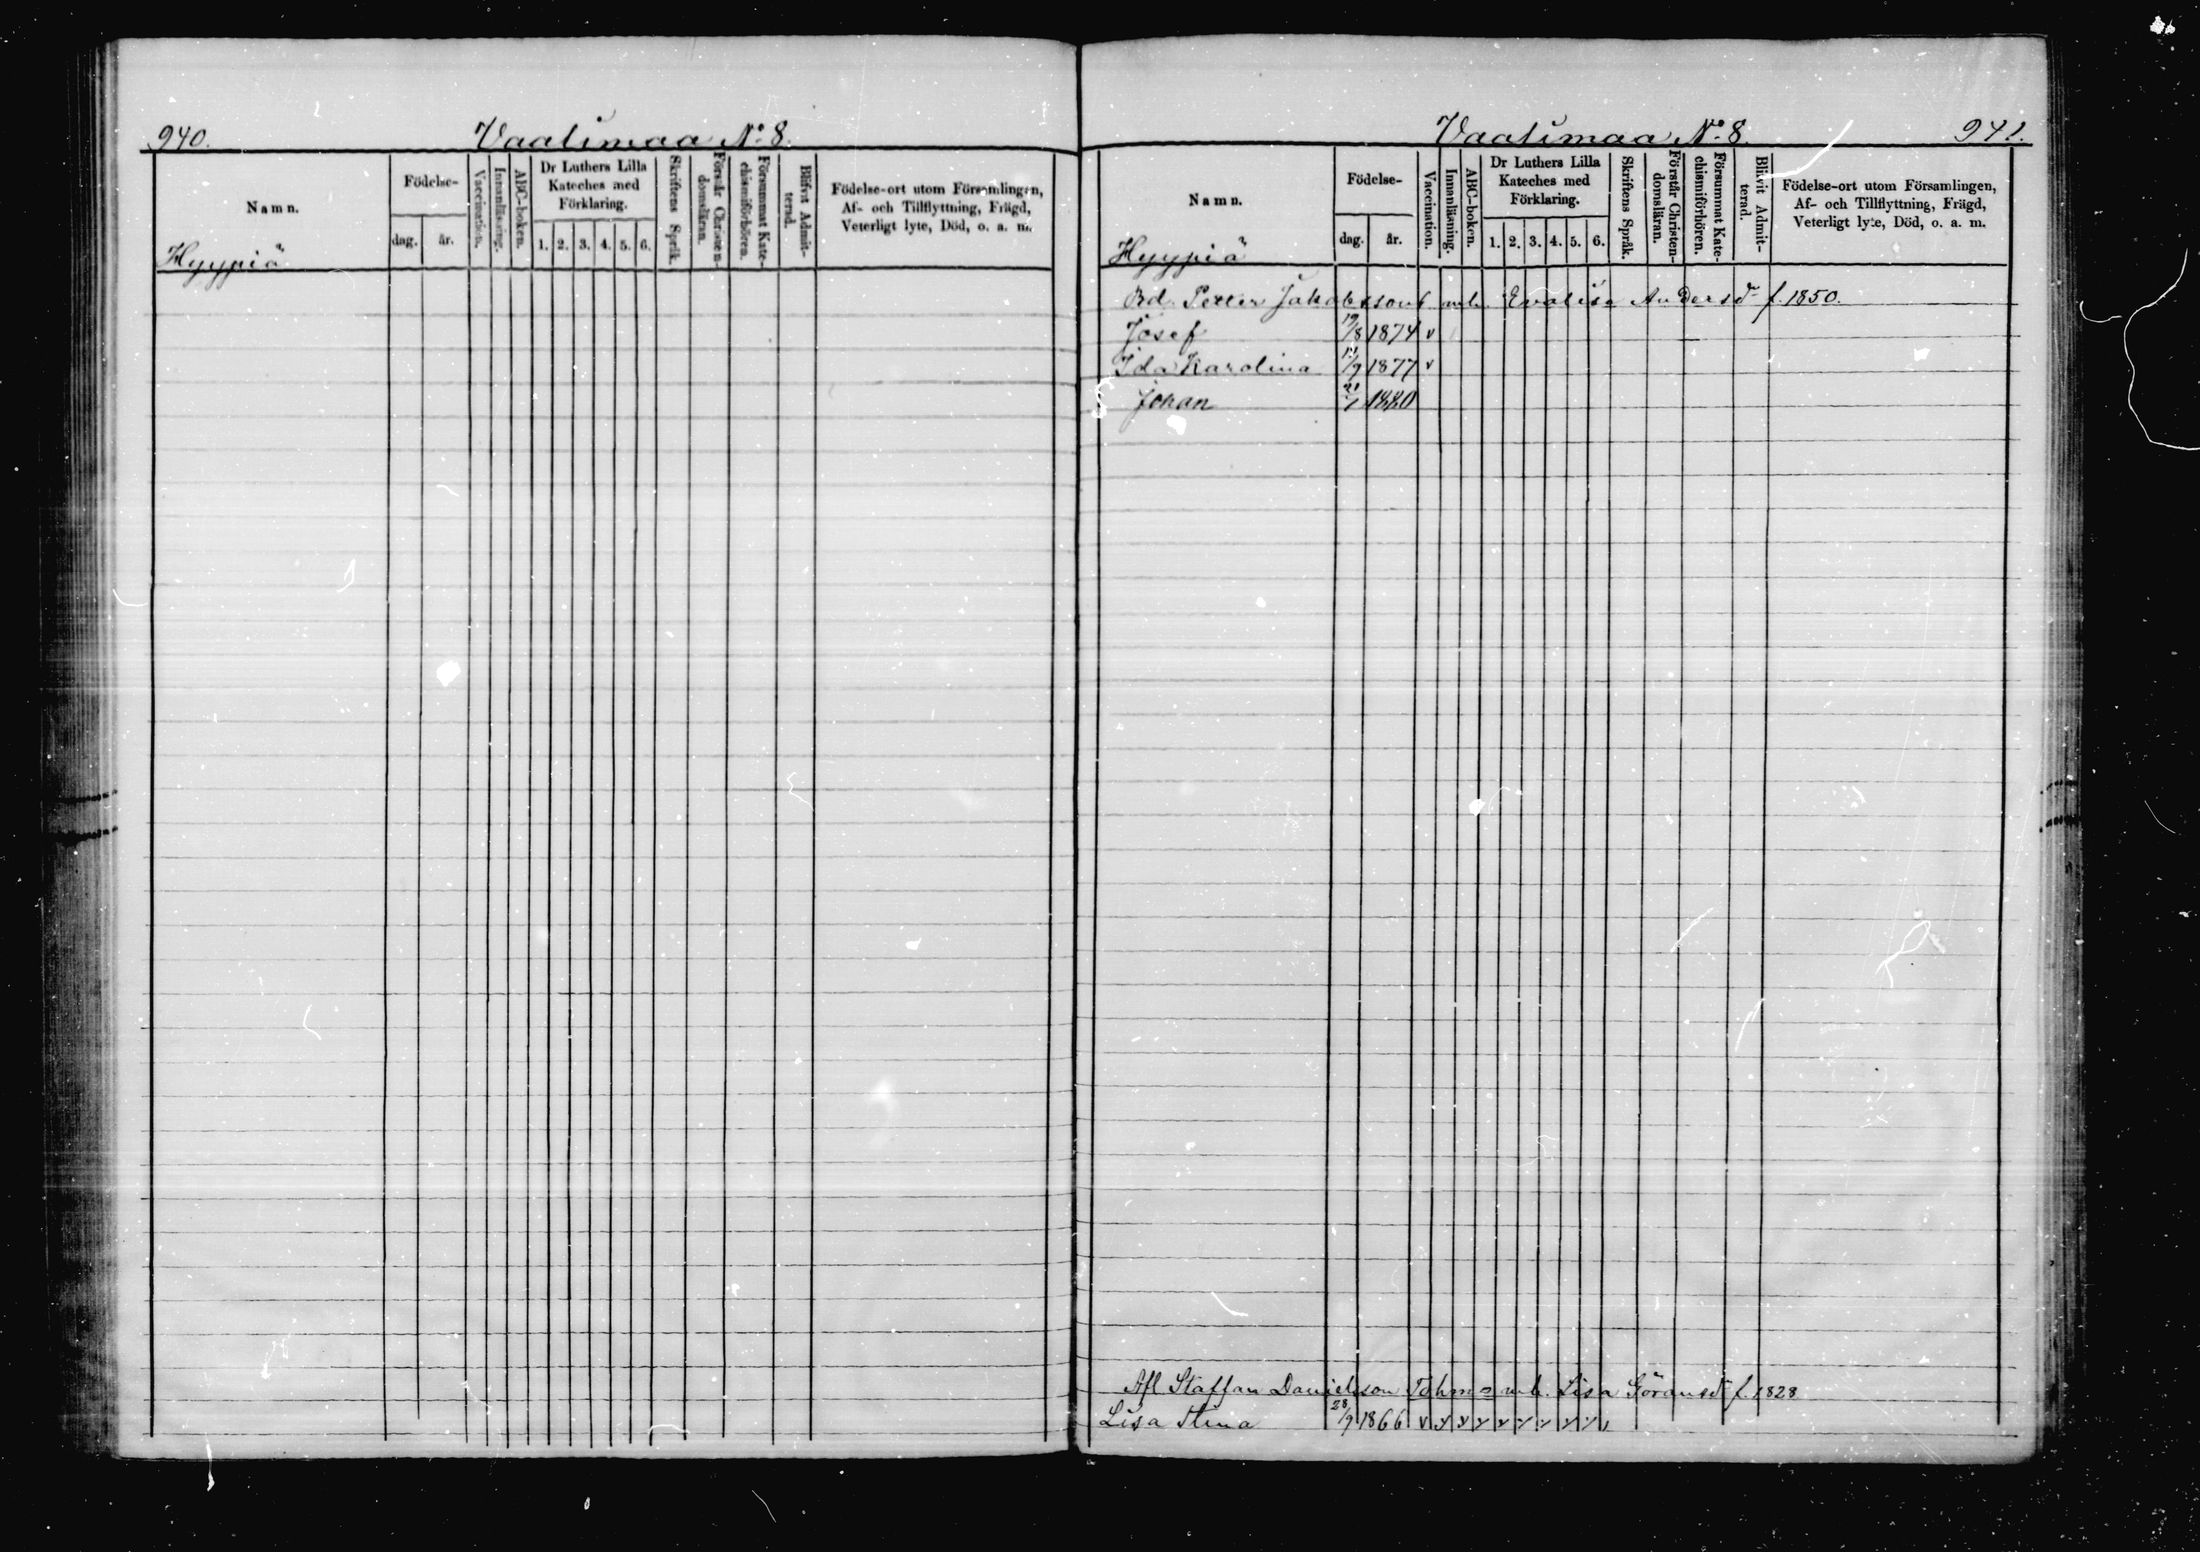 940. Vaalimaa No. 8.
Namn. Födelse- dag. år. Vaccination. Innanläsning. ABC-boken. Dr Luthers Lilla Kateches med Förklaring. 1. 2. 3. 4. 5. 6. Skriftens Språk. Förstår Christendomsläran. Försummat Katechismiförhören. Blifvit Admitterad. Födelse-ort utom Församlingen, Af- och Tillflyttning, Frägd, Veterligt lyte, Död, o. a. m.
Hyypiä
Vaalimaa No. 8. 941.
Namn. Födelse- dag. år. Vaccination. Innanläsning. ABC-boken. Dr Luthers Lilla Kateches med Förklaring. 1. 2. 3. 4. 5. 6. Skriftens Språk. Förstår Christendomsläran. Försummat Katechismiförhören. Blifvit Admitterad. Födelse-ort utom Församlingen, Af- och Tillflyttning, Frägd, Veterligt lyte, Död, o. a. m.
Hyypiä
Bd. Petter Jakobssons m.h. Evalisa Andersdr f. 1850.
Josef 19/8 1874 v
Ida Karolina 11/9 1877 v
Johan 1880
Afl Staffan Danielsson Tohm= m.h. Lisa Göransdr f. 1828
Lisa Stina 28/9 1866 v v v v v v v v v